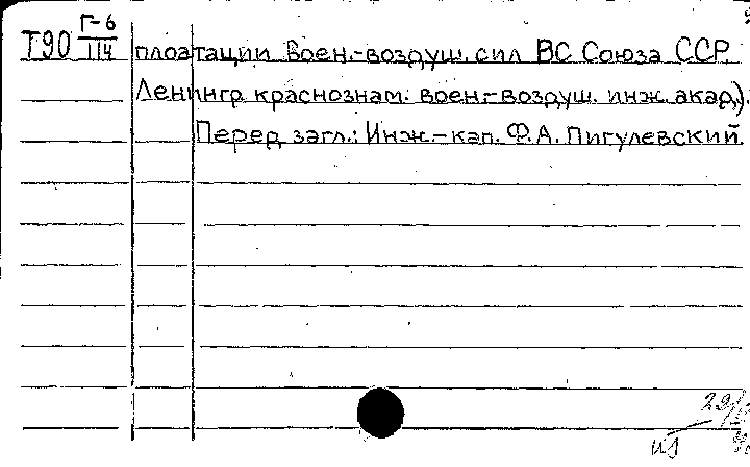 Г-6
Т90 114 плоатации Воен.-воздуш. сил ВС Союза ССР.
Ленингр. краснознам. воен.-воздуш. инж. акад.).
Перед загл.: Инж.-кап. Ф.А. Пигулевский.
29/